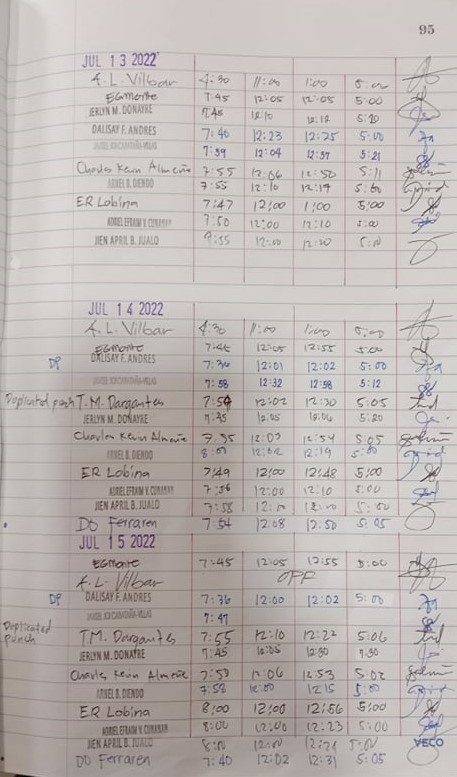 95
JUL 13 2022
A. L. Vilbar 4:30 11:00 1:00 5:00
EGMonte 7:45 12:05 12:05 5:00
JERLYN M. DONAYRE 7:45 12:10 12:12 5:20
DALISAY F. ANDRES 7:40 12:23 12:25 5:00
7:59 12:04 12:57 5:21
Charles Kevin Almeña 7:55 12:06 12:50 5:11
ARNEL B. DIENDO 7:55 12:10 12:19 5:00
ER Lobina 7:47 12:00 1:00 5:00
ADRIEL EFRAIM V. CUNANAN 7:50 12:00 12:10 5:00
JIEN APRIL B. JUALO 7:55 12:00 12:20 5:10
JUL 14 2022
A. L. Vilbar 4:30 11:00 1:00 5:00
EGMonte 7:45 12:05 12:55 5:00
DP DALISAY F. ANDRES 7:36 12:01 12:02 5:00
7:58 12:32 12:58 5:12
Duplicated punch T.M. Dargantes 7:54 12:02 12:30 5:05
JERLYN M. DONAYRE 7:45 12:05 12:06 5:20
Charles Kevin Almeña 7:55 12:03 12:54 5:05
ARNEL B. DIENDO 8:01 12:02 12:19 5:00
ER Lobina 7:49 12:00 12:48 5:00
ADRIEL EFRAIM V. CUNANAN 7:56 12:00 12:10 5:00
JIEN APRIL B. JUALO 7:58 5:00
DO Ferraren 7:54 12:08 12:50 5:05
JUL 15 2022
EGMonte 7:45 12:05 12:55 5:00
A. L. Vilbar OFF
DP DALISAY F. ANDRES 7:36 12:00 12:02 5:00
7:47
Duplicated punch TM. Dargantes 7:55 12:10 12:22 5:06
JERLYN M. DONAYRE 7:45 12:05 12:30 7:30
Charles Kevin Almeña 7:58 12:06 12:53 5:02
ARNEL B. DIENDO 7:58 12:00 12:15 5:00
ER Lobina 8:00 12:00 12:56 5:00
ADRIEL EFRAIM V. CUNANAN 8:00 12:00 12:23 5:00
JIEN APRIL B. JUALO 8:00 12:00 12:21 5:00 VECO
DO Ferraren 7:40 12:02 12:31 5:05